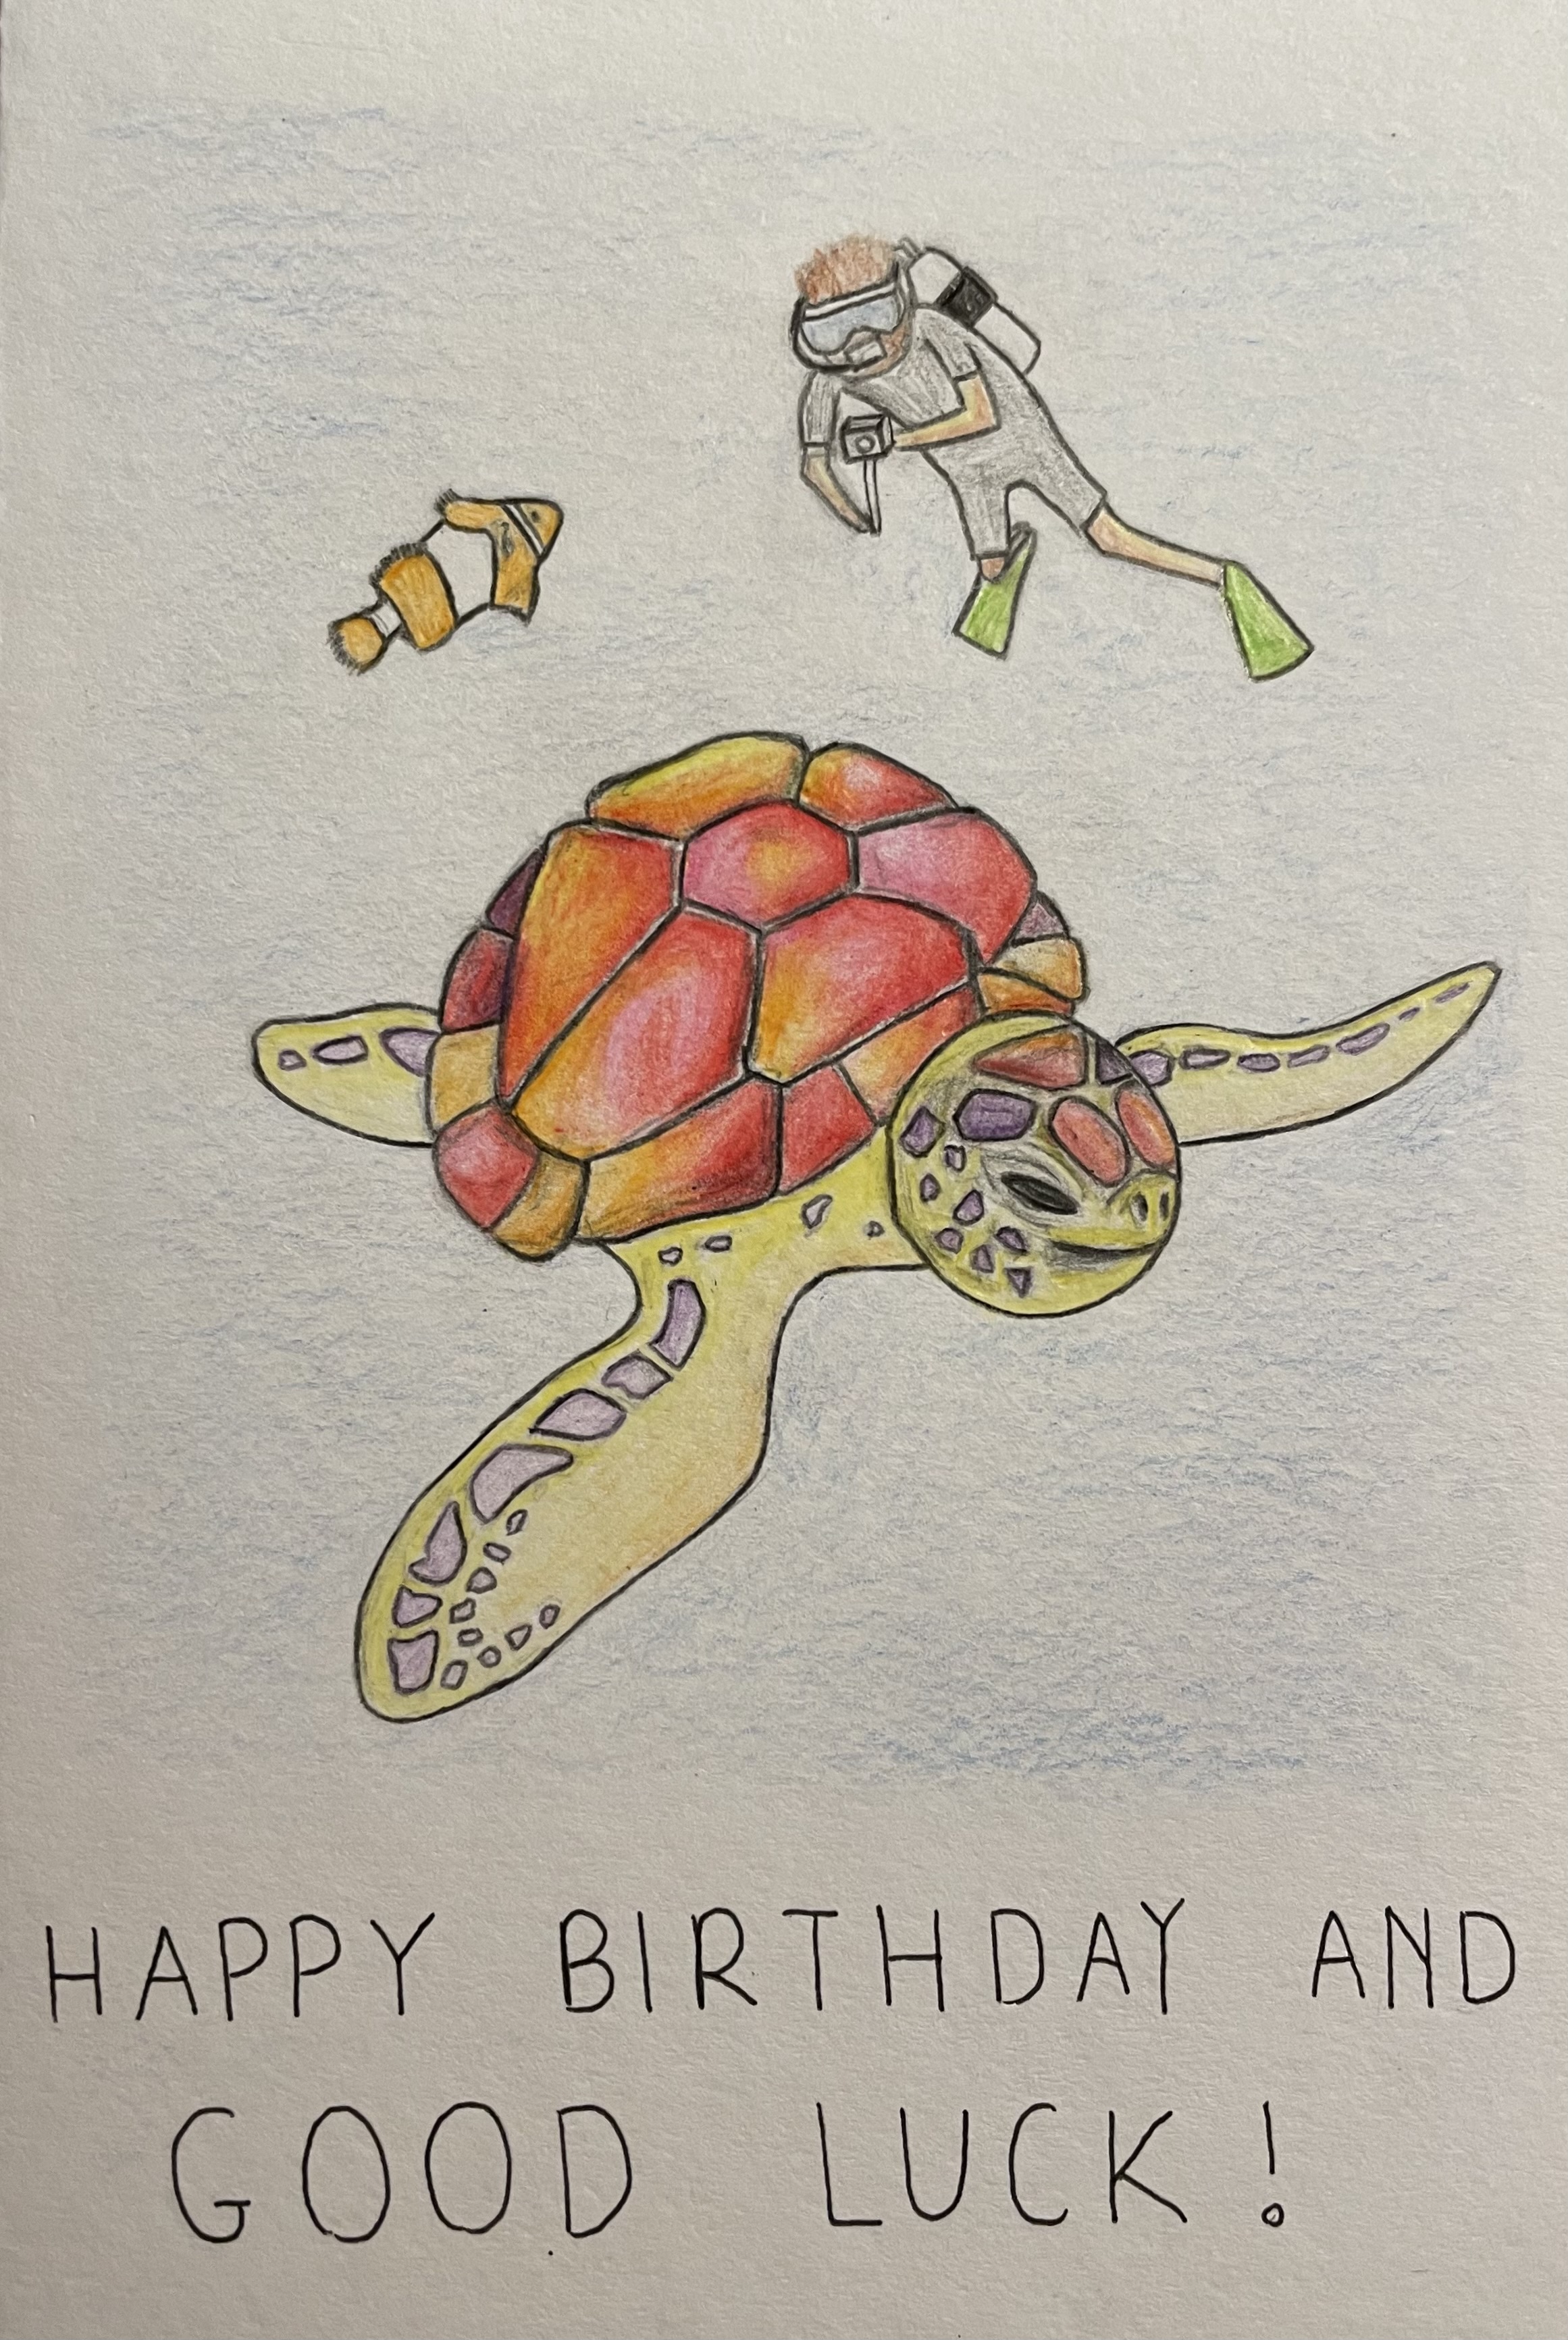 HAPPY BIRTHDAY AND
GOOD LUCK!